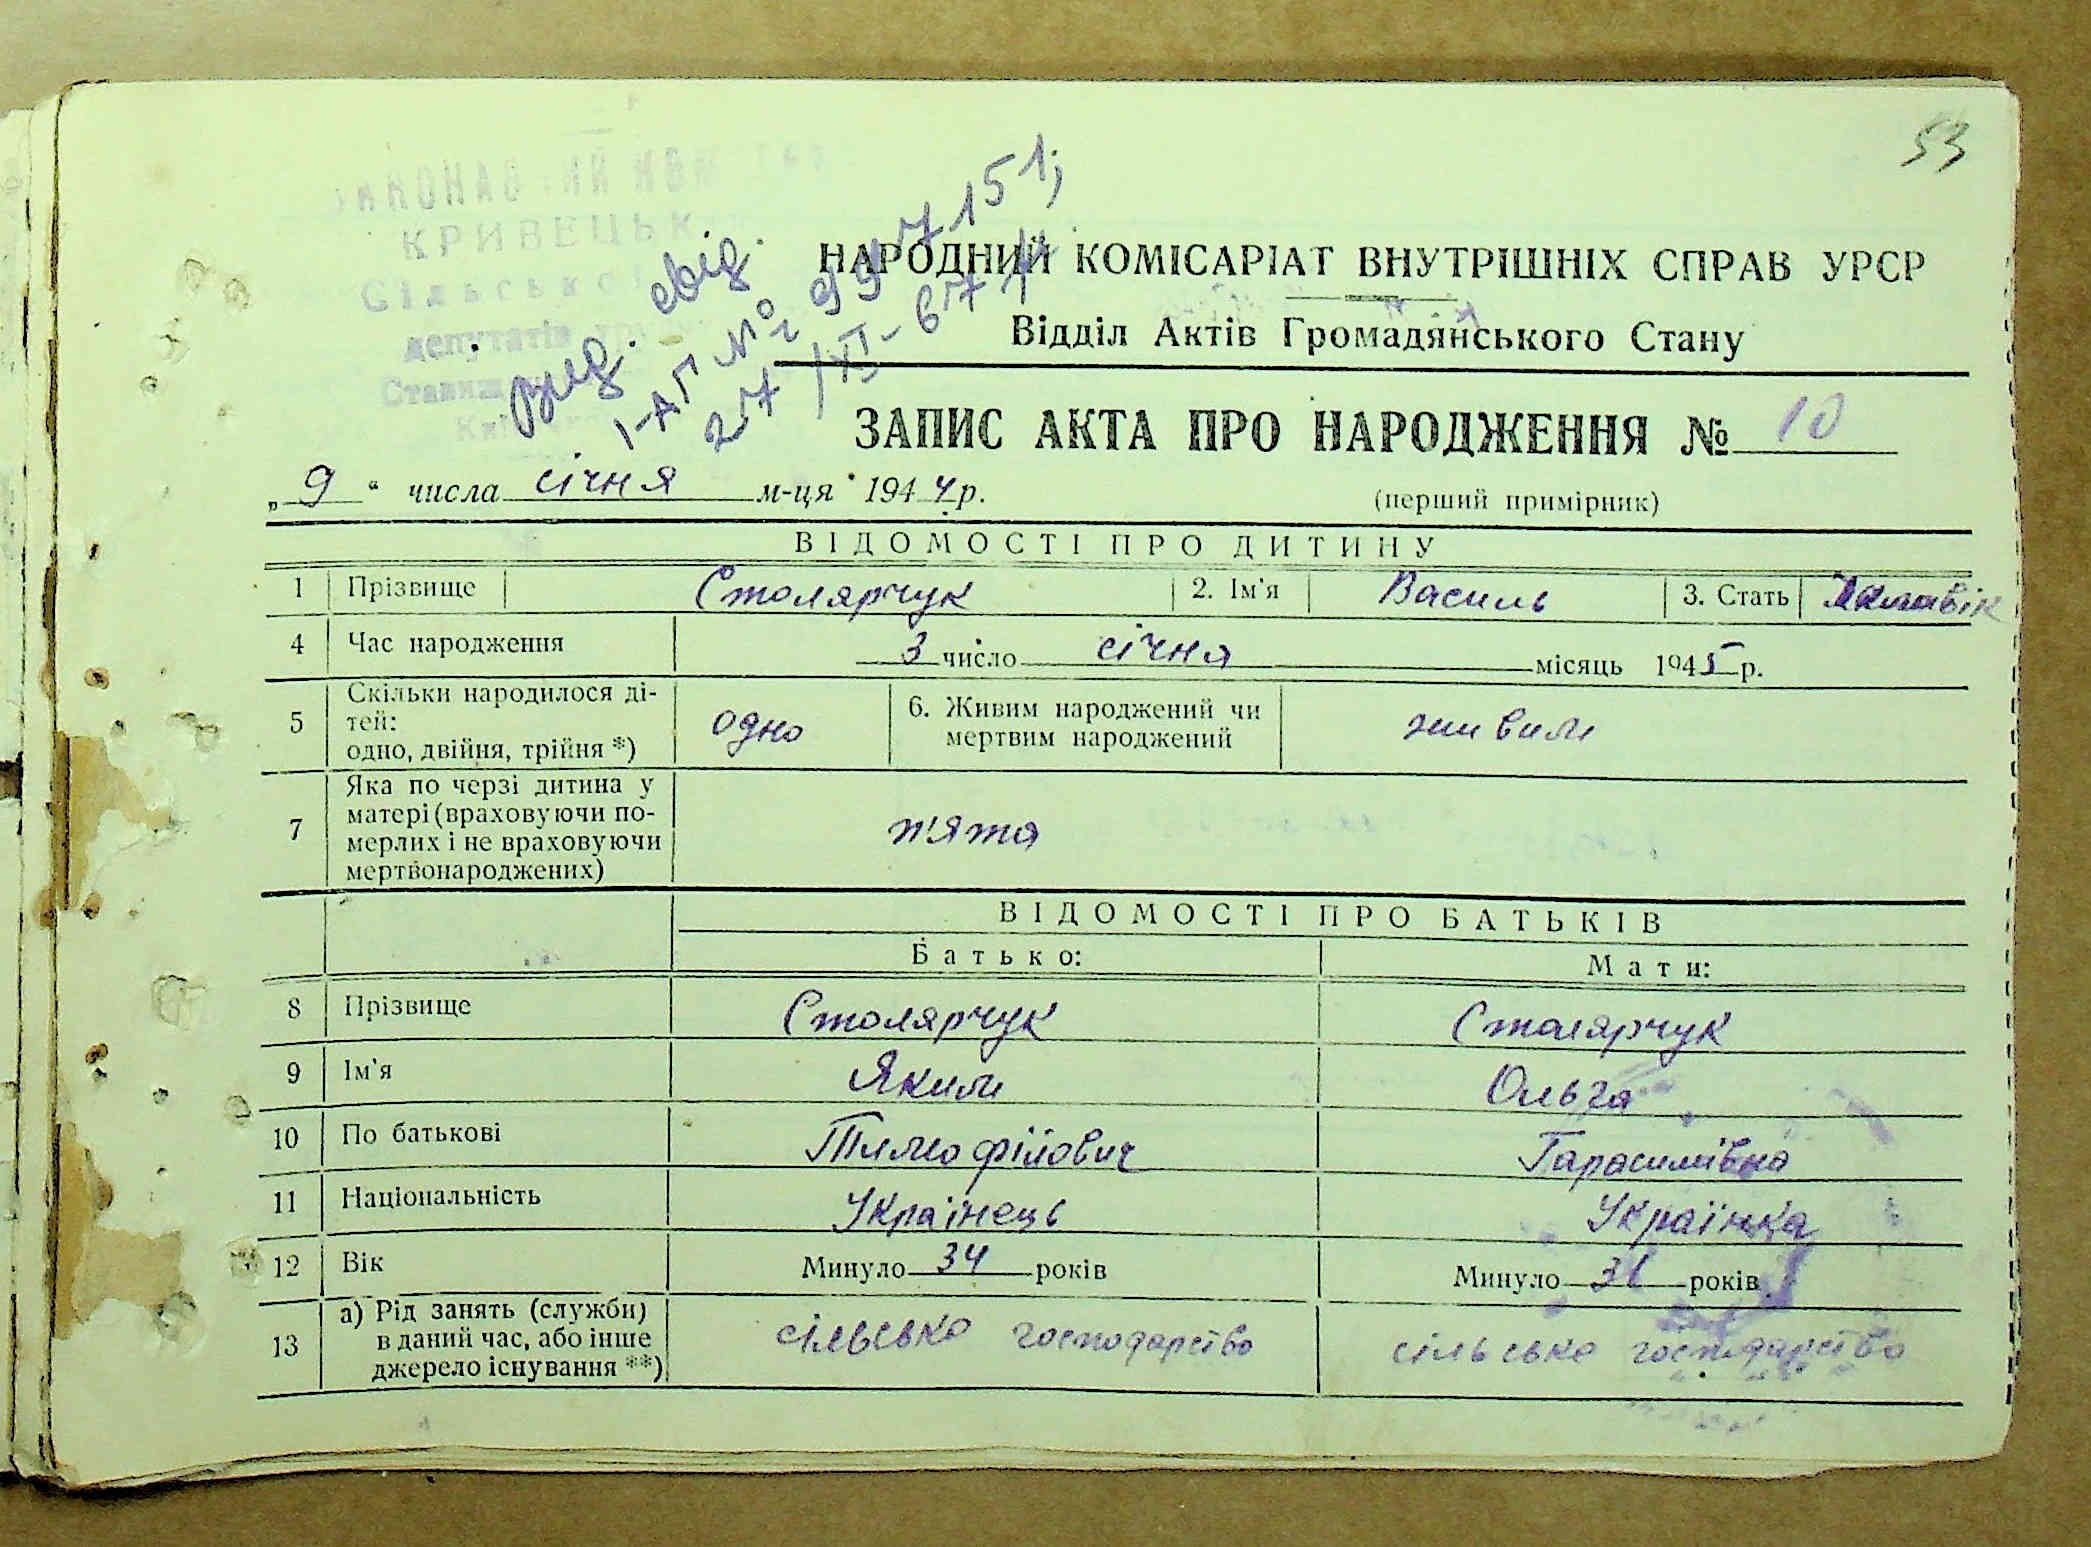 53
КРИВЕЦЬК
Сільсько
депутатів
вид. свід.
I-АП № 997151;
27/XI-67 р.
НАРОДНИЙ КОМІСАРІАТ ВНУТРІШНІХ СПРАВ УРСР
Відділ Актів Громадянського Стану
ЗАПИС АКТА ПРО НАРОДЖЕННЯ № 10
„ 9 “ числа січня м-ця 1944 р.
(перший примірник)
ВІДОМОСТІ ПРО ДИТИНУ
1 Прізвище Столярчук 2. Ім'я Василь 3. Стать
4 Час народження 3 число січня місяць 1945 р.
5 Скільки народилося ді-
тей:
одно, двійня, трійня *) одно 6. Живим народжений чи
мертвим народжений живим
7 Яка по черзі дитина у
матері (враховуючи по-
мерлих і не враховуючи
мертвонароджених) п'ята
ВІДОМОСТІ ПРО БАТЬКІВ
Батько: Мати:
8 Прізвище Столярчук Столярчук
9 Ім'я Яким Ольга
10 По батькові Тимофійович Гарасимівна
11 Національність Українець Українка
12 Вік Минуло 34 років Минуло 31 років
13 а) Рід занять (служби)
в даний час, або інше
джерело існування **) сільсько господарство сільсько господарство